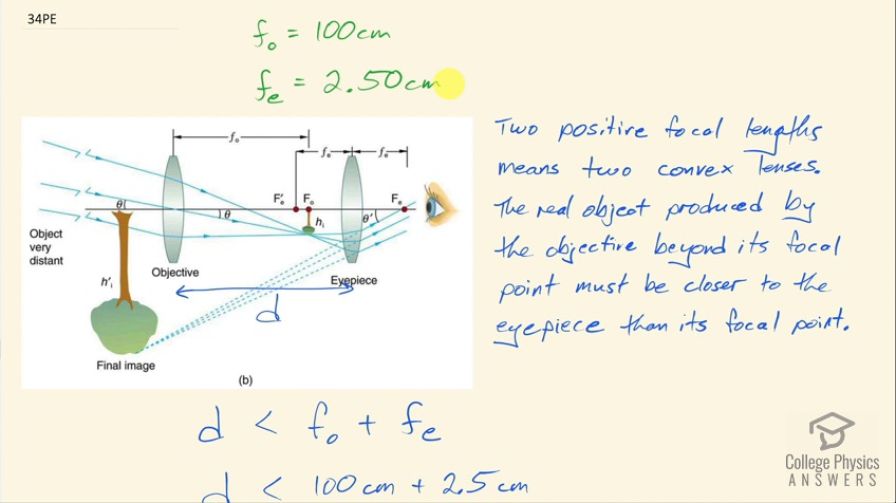 34PE
f_o = 100 cm
f_e = 2.50 cm
f_o
f_e f_e
F'_e F_o F_e
θ θ h_i θ'
Object
very
distant
Objective
Eyepiece
h'_i
d
Final image
(b)
Two positive focal lengths
means two convex lenses.
The real object produced by
the objective beyond its focal
point must be closer to the
eyepiece than its focal point.
d < f_o + f_e
d < 100 cm + 2.5 cm
College Physics
ANSWERS